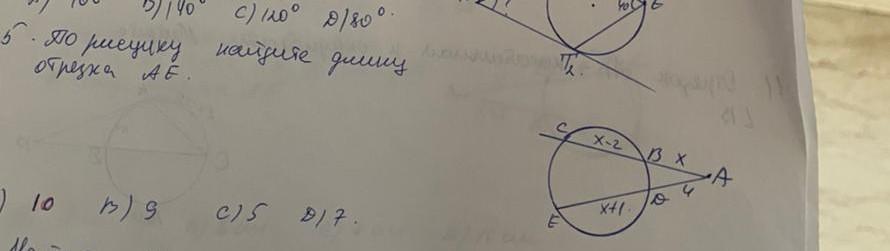 B) 140° C) 120° D) 80°.
5. По рисунку найдите длину
отрезка AE.
C
x-2
B
x
A
4
D
x+1
E
) 10 B) 9 C) 5 D) 7.